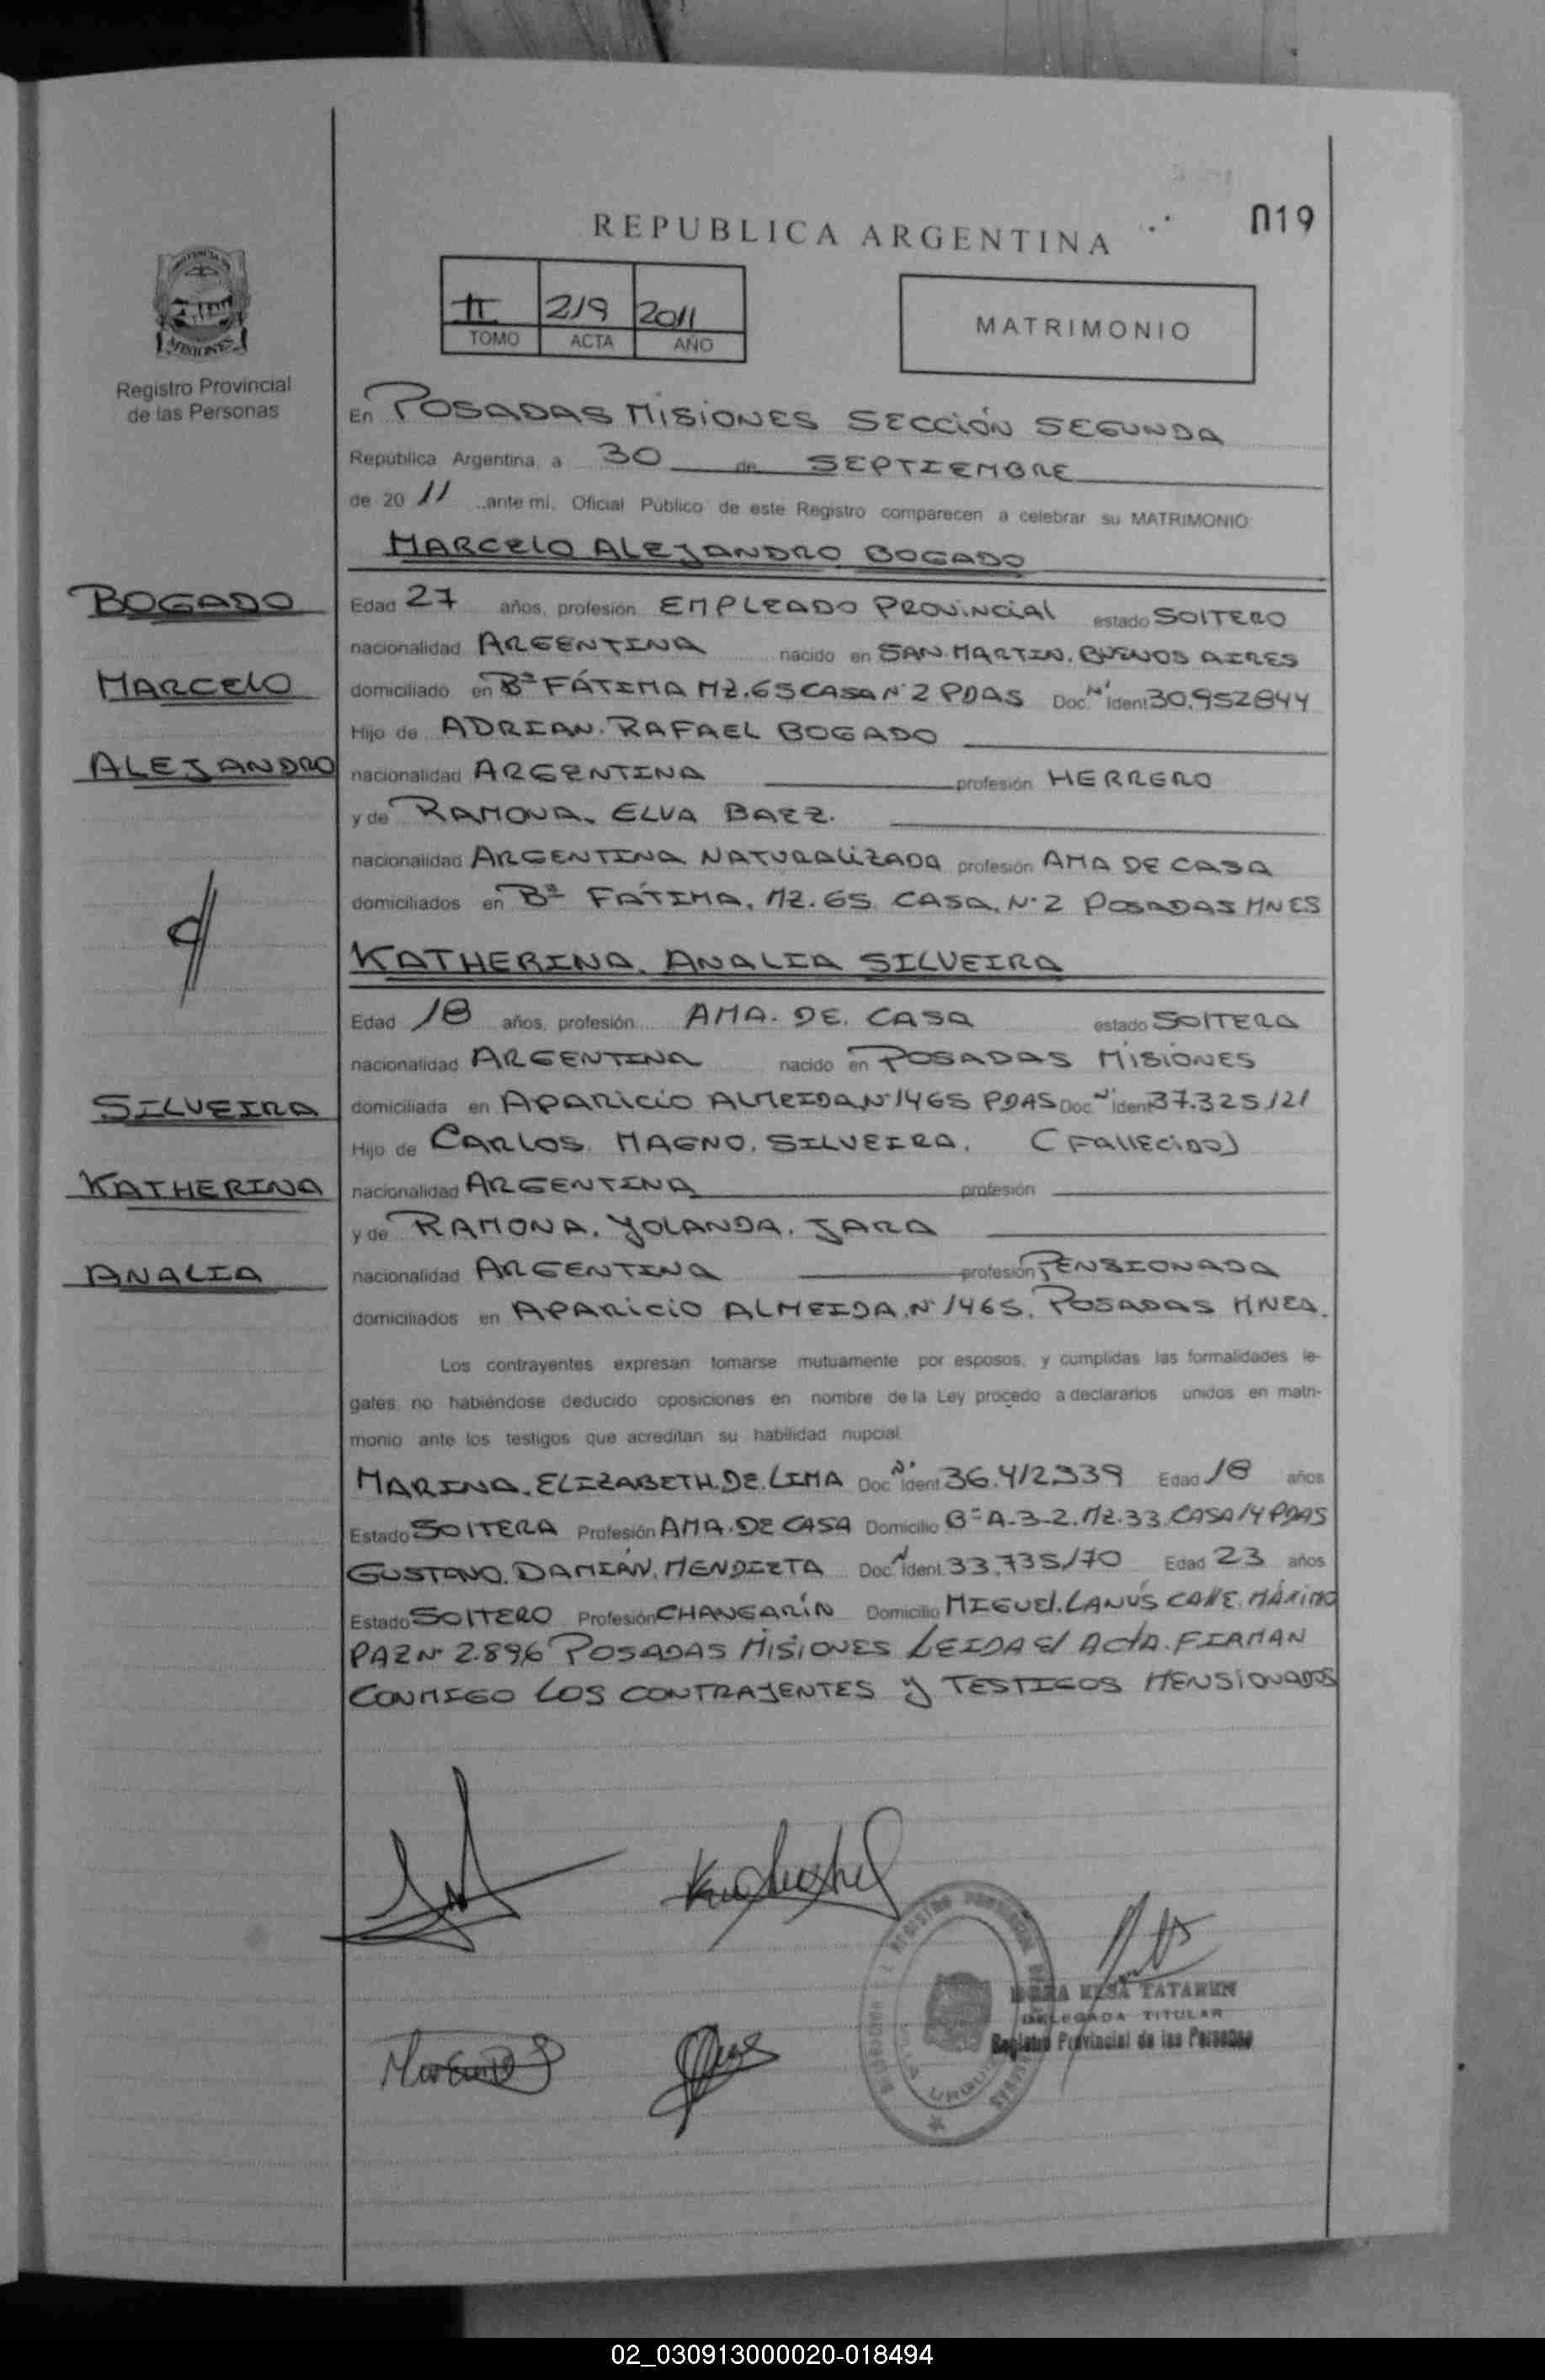 019
REPUBLICA ARGENTINA
II 219 2011
TOMO ACTA AÑO
MATRIMONIO
MISIONES
Registro Provincial
de las Personas
En POSADAS MISIONES SECCIÓN SEGUNDA
República Argentina, a 30 de SEPTIEMBRE
de 20 11 ..ante mi, Oficial Público de este Registro comparecen a celebrar su MATRIMONIO:
MARCELO ALEJANDRO BOGADO
BOGADO
Edad 27 años, profesión EMPLEADO PROVINCIAL estado SOLTERO
nacionalidad ARGENTINA nacido en SAN MARTIN. BUENOS AIRES
MARCELO
domiciliado en Bº FÁTIMA MZ.65 CASA Nº 2 PDAS Doc. Nº Ident 30.952844
Hijo de ADRIAN. RAFAEL BOGADO
ALEJANDRO
nacionalidad ARGENTINA profesión HERRERO
y de RAMONA. ELVA BAEZ.
nacionalidad ARGENTINA NATURALIZADA profesión AMA DE CASA
domiciliados en Bº FÁTIMA, MZ. 65 CASA. Nº 2 POSADAS MNES
KATHERINA. ANALIA SILVEIRA
Edad 18 años, profesión AMA. DE. CASA estado SOLTERA
nacionalidad ARGENTINA nacido en POSADAS MISIONES
SILVEIRA
domiciliada en APARICIO ALMEIDA Nº 1465 PDAS Doc. Nº Ident 37.325121
Hijo de CARLOS. MAGNO. SILVEIRA. (FALLECIDO)
KATHERINA
nacionalidad ARGENTINA profesión
y de RAMONA. YOLANDA. JARA
ANALIA
nacionalidad ARGENTINA profesión PENSIONADA
domiciliados en APARICIO ALMEIDA. Nº 1465. POSADAS MNES.
Los contrayentes expresan tomarse mutuamente por esposos, y cumplidas las formalidades le-
gales, no habiéndose deducido oposiciones en nombre de la Ley procedo a declararlos unidos en matri-
monio ante los testigos que acreditan su habilidad nupcial.
MARINA. ELIZABETH. DE. LIMA Doc. Nº Ident 36.412339 Edad 18 años
Estado SOLTERA Profesión AMA. DE CASA Domicilio Bº A-3-2. MZ.33 CASA 14 PDAS
GUSTAVO. DAMIÁN. MENDIETA Doc. Nº Ident 33.735170 Edad 23 años
Estado SOLTERO Profesión CHANGARÍN Domicilio MIGUEL. LANÚS CALLE. MÁXIMO
PAZ Nº 2.896 POSADAS MISIONES LEIDA EL ACTA. FIRMAN
CONMIGO LOS CONTRAJENTES Y TESTIGOS MENSIONADOS
TATAREN
DELEGADA TITULAR
Registro Provincial de las Personas
02_030913000020-018494